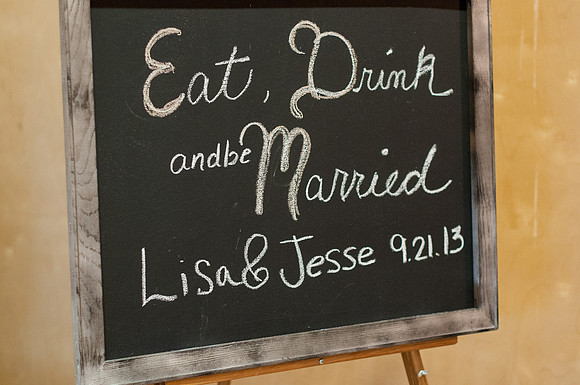 Eat, Drink
and be Married
Lisa & Jesse 9.21.13